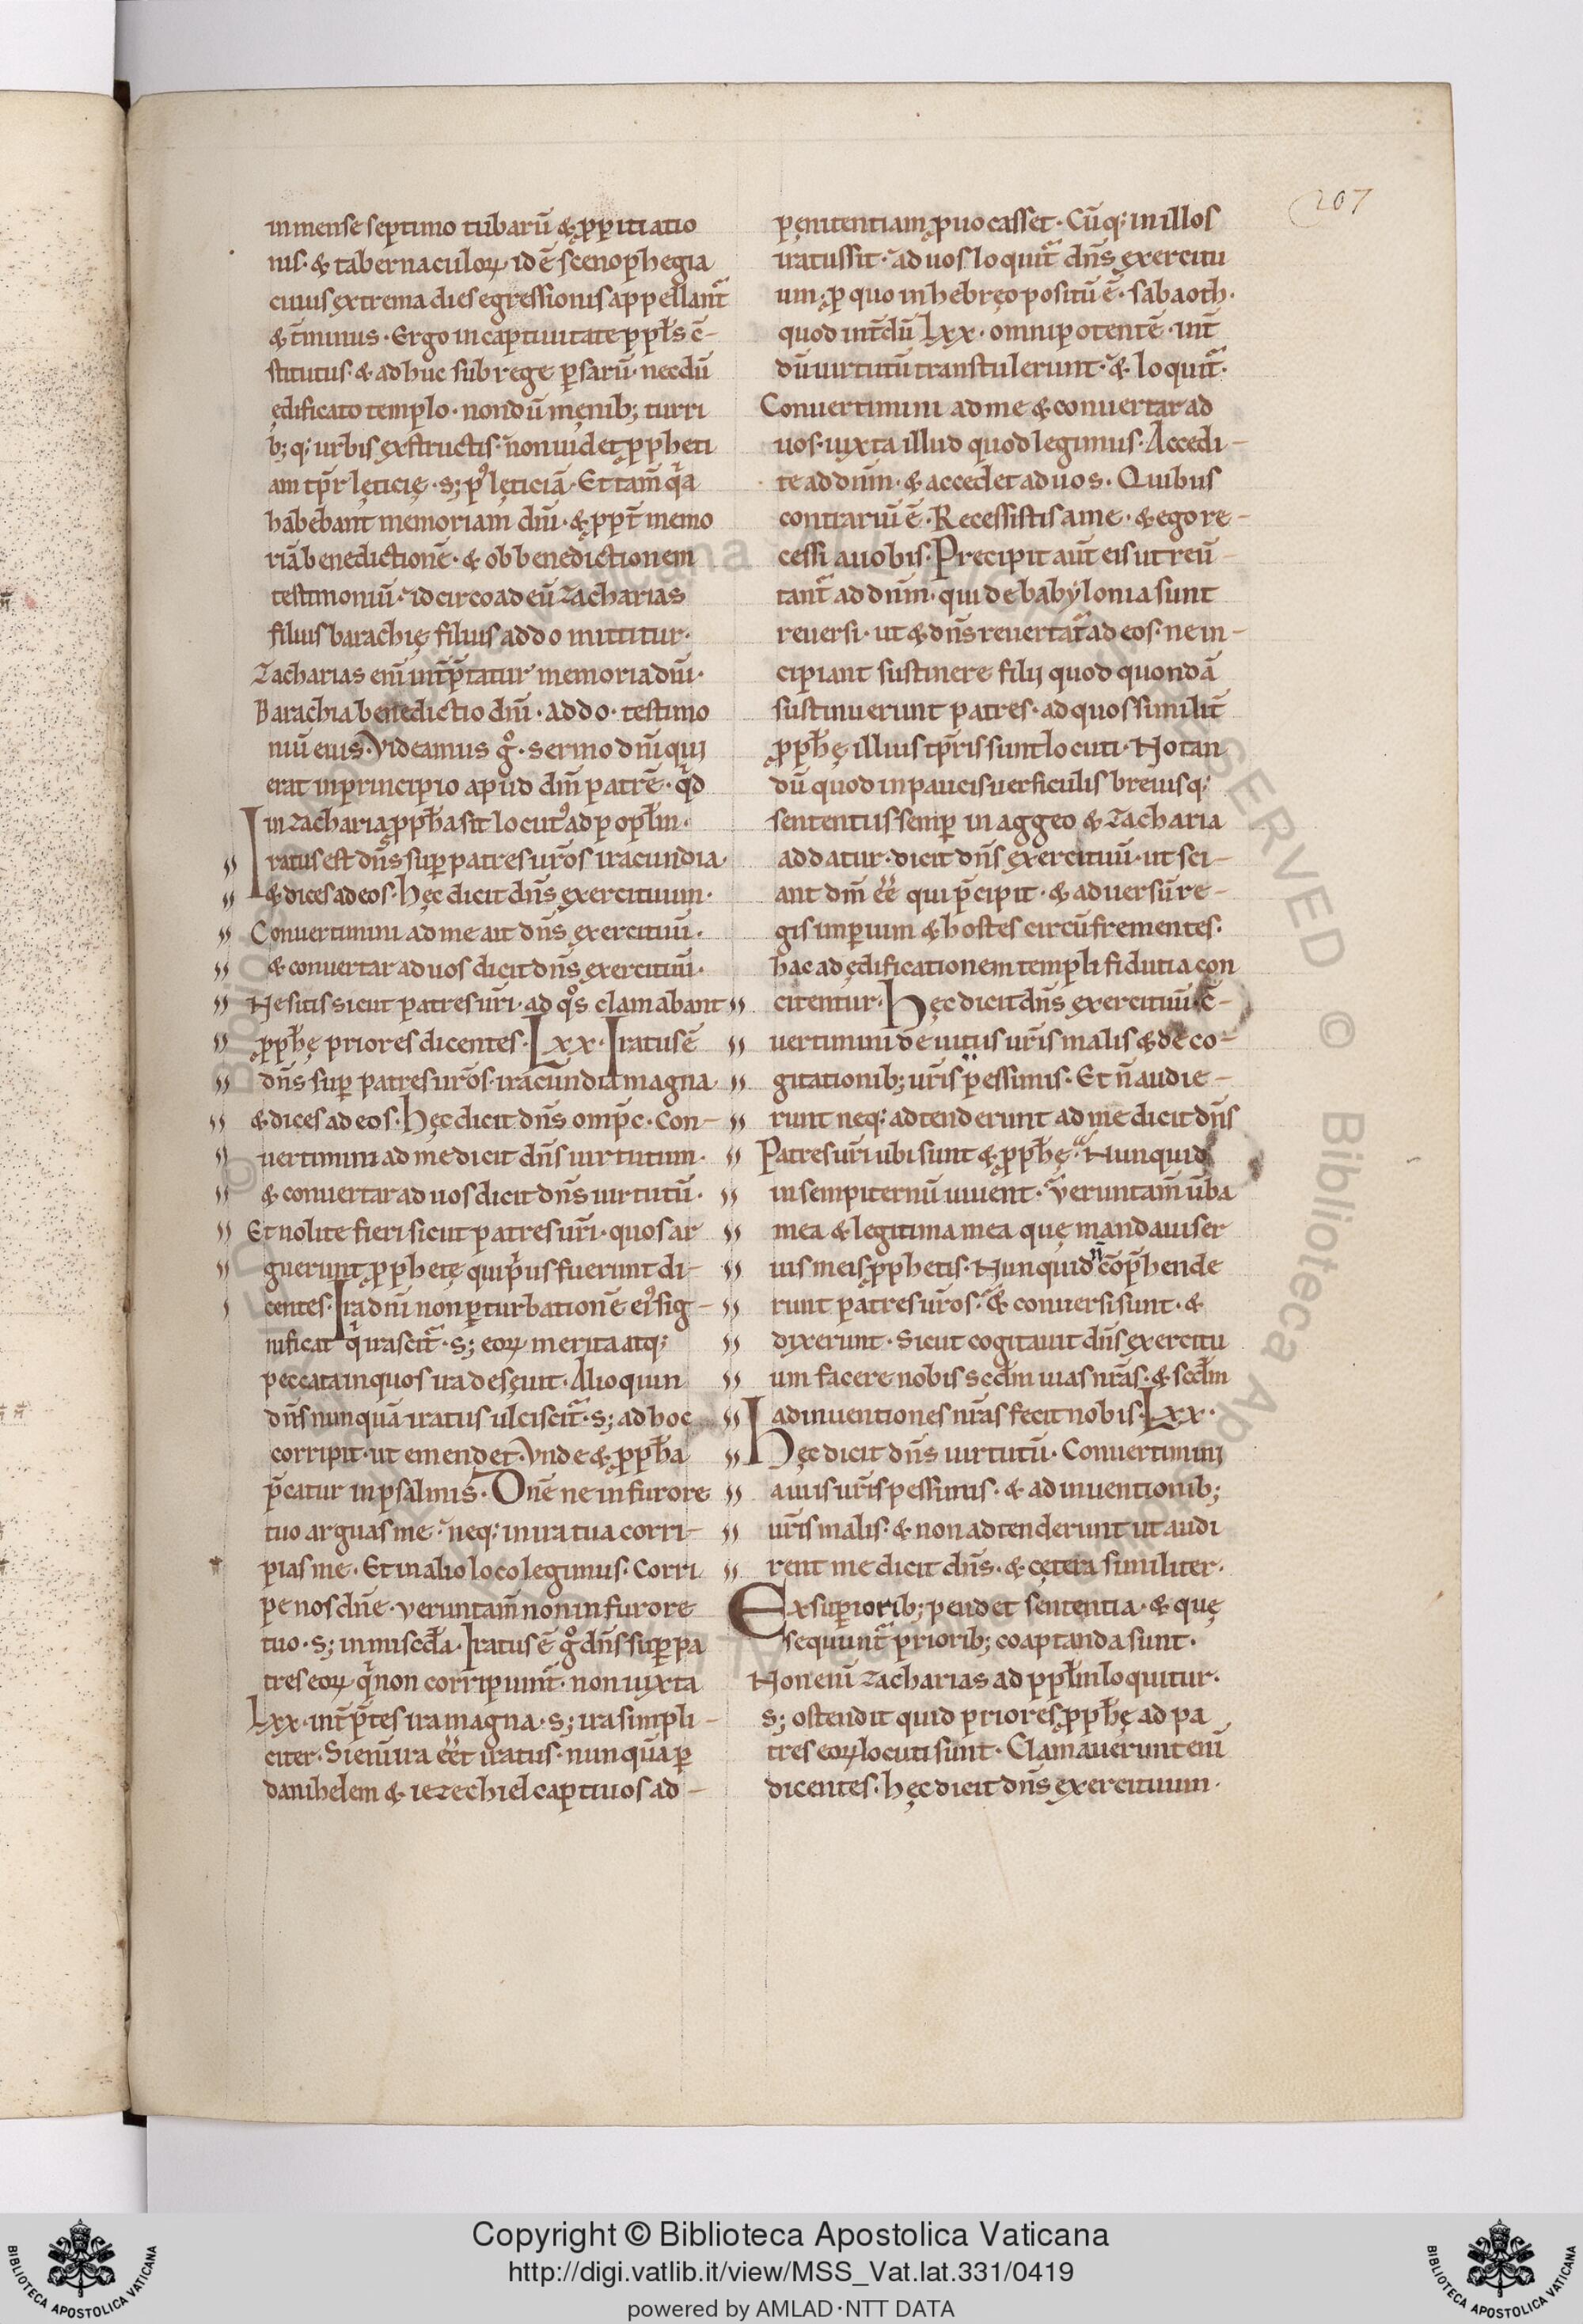 207
in mense septimo tubarū & ꝓpitiatio
nis· & tabernaculoꝝ id ē scenophegia
cuius extrema dies egressionis appellant᷑
& t̄minus· Ergo in captiuitate ppl̄s c̄-
stitutus· & adhuc sub rege ꝑsarū· necdū
ędificato templo· nondū męnib; turri
b;q; urbis exstructis· non uidet ꝓpheti
am tp̄r lęticię· s; pꝰ lęticiā· Et tam̄ qͥa
habebant memoriam dn̄i· & ꝓpt̄ memo
riā benedictionē· & ob benedictionem
testimoniū· idcirco ad eū zacharias
filius barachię filius addo mittitur·
Zacharias eni̅ int̄p̄tatur memoria dn̄i·
Barachia benedictio dn̄i· addo· testimo
niū eius· Videamus gͦ· sermo dn̄i qui
erat in principio apud dm̄ patrē· qd̄
in zacharia ꝓph̄a sit locutꝰ ad popl̄m·
Iratus est dn̄s suꝑ patres ur̄os iracundia·
& dices ad eos· hęc dicit dn̄s exercituum·
Conuertimini ad me ait dn̄s exercituū·
& conuertar ad uos dicit dn̄s exercituū·
Ne sitis sicut patres ur̄i· ad qͦs clamabant
ꝓph̄ę priores dicentes· Lxx· Iratus ē
dn̄s suꝑ patres ur̄os· iracundia magna·
& dices ad eos· hęc dicit dn̄s omp̄c· Con-
uertimini ad me dicit dn̄s uirtutum·
& conuertar ad uos dicit dn̄s uirtutū·
Et nolite fieri sicut patres ur̄i· quos ar
guerunt ꝓphetę qui pͥus fuerunt di-
centes· Ira dn̄i non ꝑturbationē eiꝰ sig-
nificat qͥ irascit᷑· s; eoꝝ merita atq;
peccata in quos ira desęuit· Alioquin
dn̄s nunquā iratus ulciscit᷑· s; ad hoc
corripit· ut emendet· Vnde & ꝓph̄a
p̄catur in psalmis· Dn̄e ne in furore
tuo arguas me· neq; in ira tua corri-
pias me· Et in alio loco legimus· Corri
pe nos dn̄e· ueruntam̄ non in furore
tuo· s; in misc̄dia· Iratus ē gͦ dn̄s suꝑ pa
tres eoꝝ qͥ non corripiunt᷑· non iuxta
Lxx· int̄p̄tes ira magna· s; ira simpli-
citer· Si eni̅ ira eēt iratus· nunquā ꝑ
danihelem & iezechiel captiuos ad-
pęnitentiam ꝓuocasset· Cūq; in illos
iratus sit· ad uos loquit᷑ dn̄s exercitu
um· ꝓ quo in hebręo positū ē· sabaoth·
quod int̄dū Lxx· omnipotentē· int̄
dū uirtutū transtulerunt· & loquit᷑·
Conuertimini ad me & conuertar ad
uos· iuxta illud quod legimus· Accedi-
te ad dn̄m· & accedet ad uos· Quibus
contrariū ē· Recessistis a me· & ego re-
cessi a uobis· Precipit aut̄ eis ut reū-
tant᷑ ad dn̄m· qui de babylonia sunt
reuersi· ut & dn̄s reuertat᷑ ad eos· ne in-
cipiant sustinere filij quod quondā
sustinuerunt patres· ad quos similit̄
ꝓph̄ę illius tp̄ris sunt locuti· Notan
dū quod in paucis uersiculis breuisq;
sententiis semꝑ in aggeo & zacharia
addatur· dicit dn̄s exercituū· ut sci-
ant dm̄ ee̅ qui p̄cipit· & aduersū re-
gis imꝑium & hostes circūfrementes·
hac ad ędificationem templi fidutia con
citentur· Hęc dicit dn̄s exercituū· c̄-
uertimini de uiciis ur̄is malis & de co-
gitationib; ur̄is pessimis· Et n̄ audie-
runt neq; adtenderunt ad me dicit dn̄s
Patres ur̄i ubi sunt & ꝓph̄ę· Nunquid
in sempiternū uiuent· Veruntam̄ ūba
mea & legitima mea quę mandaui ser
uis meis ꝓphetis· Nunquid n̄ cōp̄hende
runt patres ur̄os· & conuersi sunt· &
dixerunt· Sicut cogitauit dn̄s exercitu
um facere nobis scd̄m uias nr̄as· & scd̄m
adinuentiones nr̄as fecit nobis· Lxx·
Hęc dicit dn̄s uirtutū· Conuertimini
a uiis ur̄is pessimis· & ad inuentionib;
ur̄is malis· & non adtenderunt ut audi
rent me dicit dn̄s· & cętera similiter·
Ex suꝑiorib; pendet sententia· & quę
sequunt᷑ priorib; coaptanda sunt·
Non eni̅ zacharias ad ppl̄m loquitur·
s; ostendit quid priores ꝓph̄ę ad pa
tres eoꝝ locuti sunt· Clamauerunt eni̅
dicentes· hęc dicit dn̄s exercituum·
Copyright © Biblioteca Apostolica Vaticana
http://digi.vatlib.it/view/MSS_Vat.lat.331/0419
powered by AMLAD·NTT DATA
BIBLIOTECA APOSTOLICA VATICANA
BIBLIOTECA APOSTOLICA VATICANA